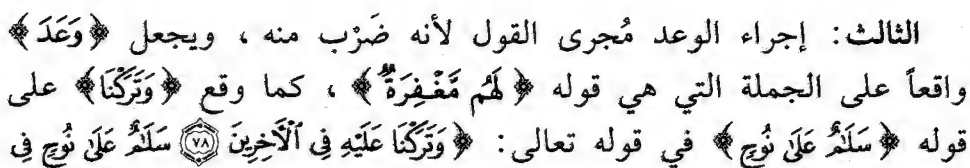 الثالث: إجراء الوعد مُجرى القول لأنه ضَرْب منه ، ويجعل ﴿ وَعَدَ ﴾
واقعاً على الجملة التي هي قوله ﴿ لَهُم مَّغْفِرَةٌ ﴾ ، كما وقع ﴿ وَتَرَكْنَا ﴾ على
قوله ﴿ سَلَٰمٌ عَلَىٰ نُوحٍ ﴾ في قوله تعالى : ﴿ وَتَرَكْنَا عَلَيْهِ فِي ٱلْآخِرِينَ ۝٧٨ سَلَٰمٌ عَلَىٰ نُوحٍ فِي